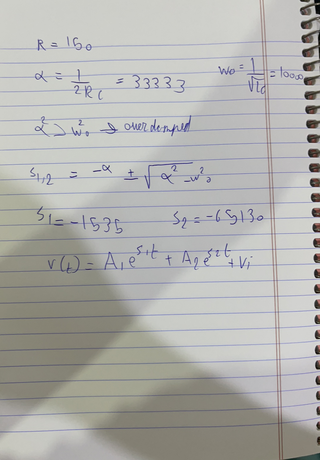 R = 150
α = 1/2RC = 33333 w₀ = 1/√LC = 10000
α² > w₀² → overdamped
s₁,₂ = -α ± √α² - w₀²
s₁ = -1535 s₂ = -65130
v(t) = A₁e^s₁t + A₂e^s₂t + Vi